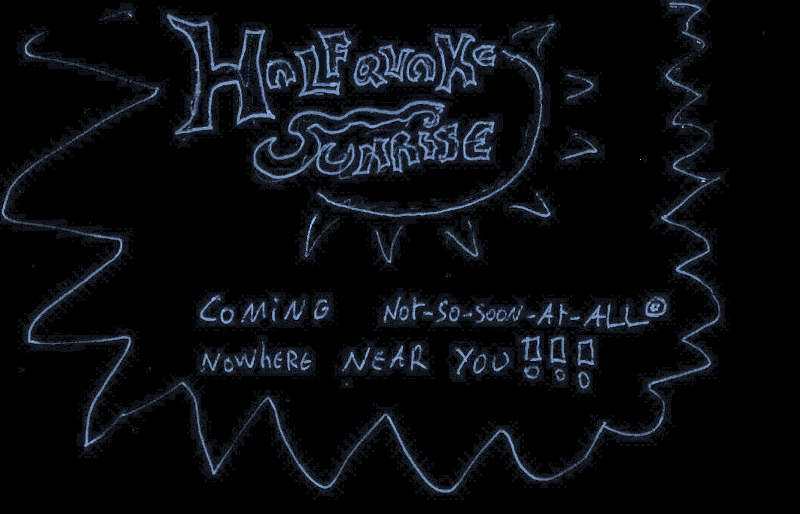 HALFQUAKE
SUNRISE
COMING NOT-SO-SOON-AT-ALL®
NOWHERE NEAR YOU!!!